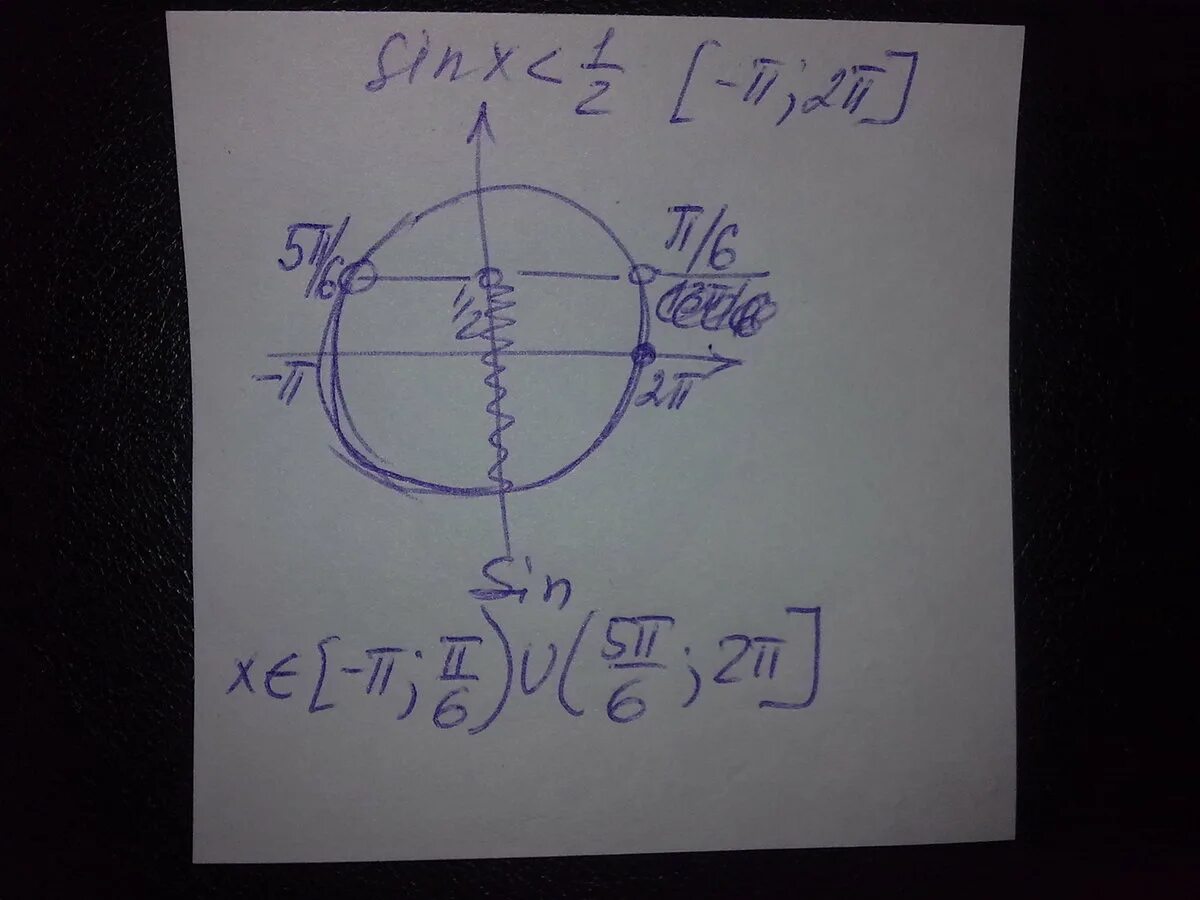 sin x < 1/2 [-π; 2π]
5π/6
π/6
1/2
-π
2π
sin
x∈[-π; π/6)∪(5π/6; 2π]